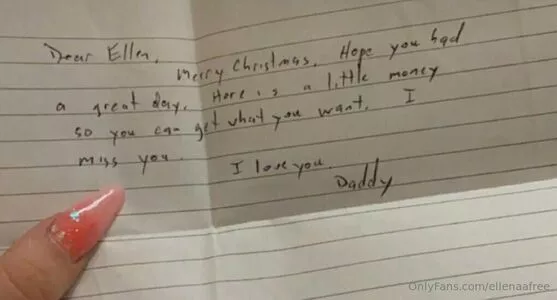 Dear Ellen,
Merry Christmas. Hope you had
a great day. Here is a little money
so you can get what you want. I
miss you.
I love you
Daddy
OnlyFans.com/ellenaafree